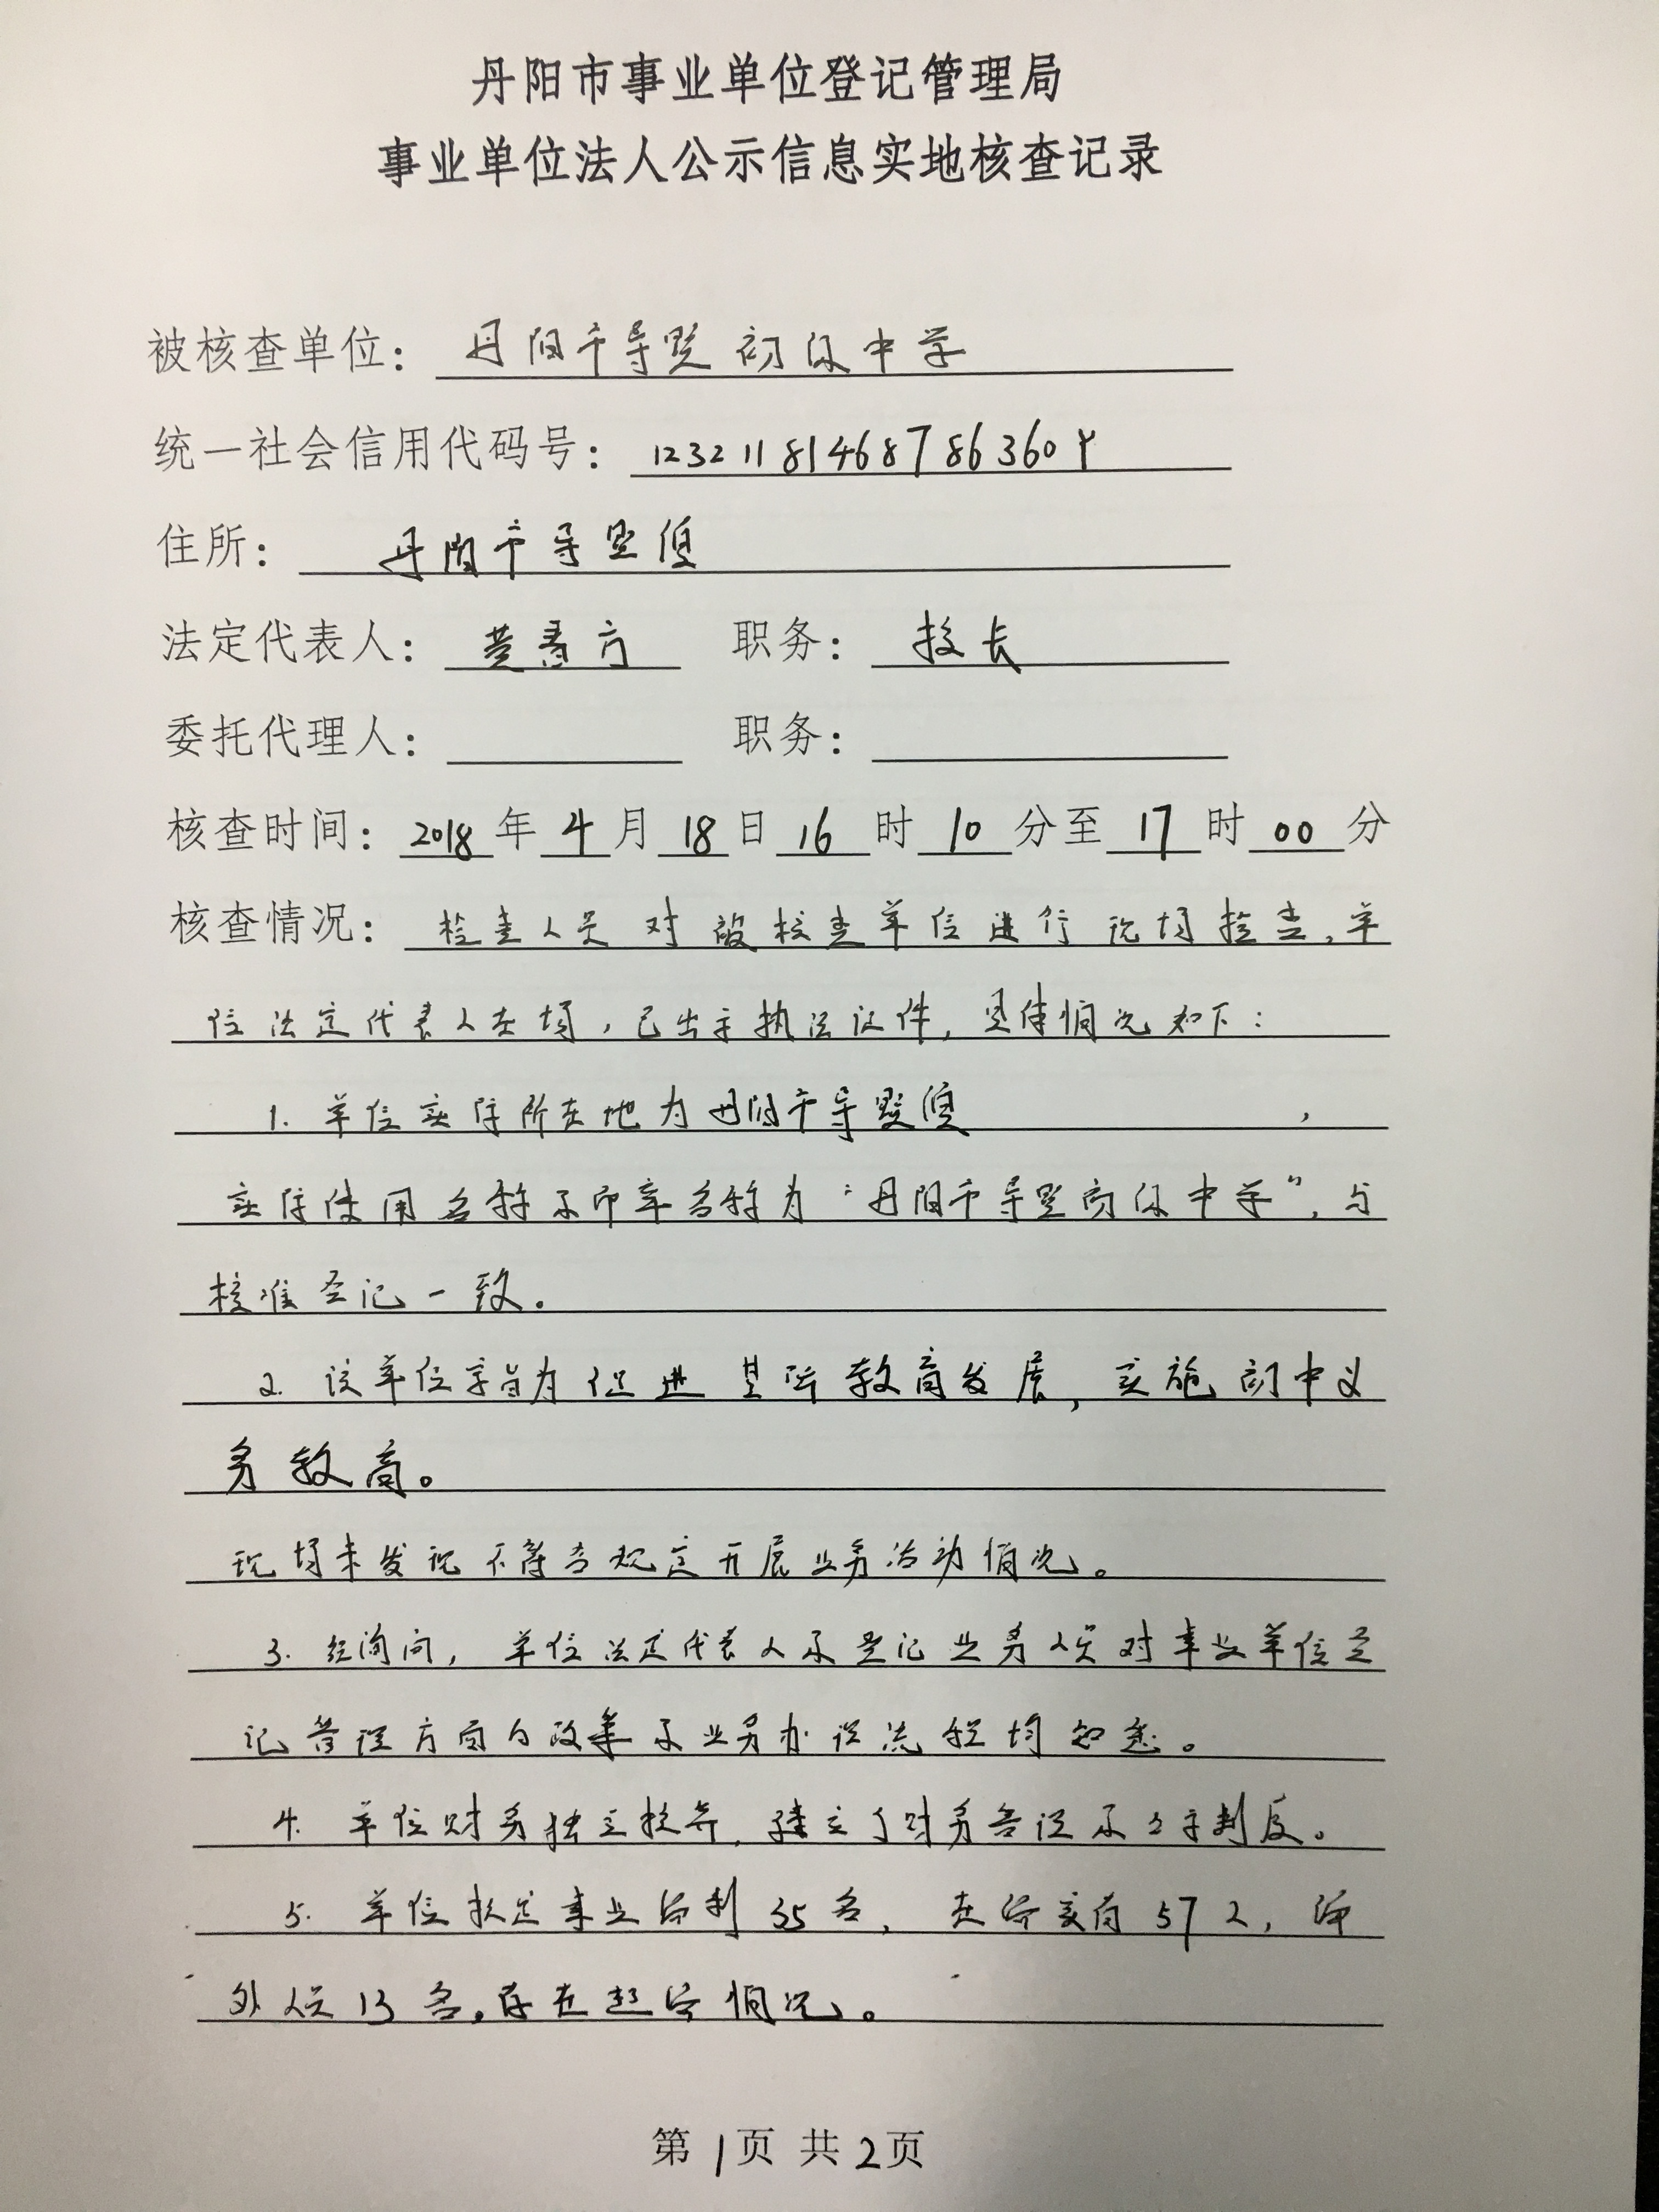 丹阳市事业单位登记管理局
事业单位法人公示信息实地核查记录
被核查单位：丹阳市导墅初级中学
统一社会信用代码号：12321181468786360Y
住所：丹阳市导墅镇
法定代表人：黄青方 职务：校长
委托代理人： 职务：
核查时间：2018年4月18日16时10分至17时00分
核查情况：检查人员对被核查单位进行现场检查，单
位法定代表人在场，已出示执法证件，具体情况如下：
1. 单位实际所在地为丹阳市导墅镇，
实际使用名称及印章名称为“丹阳市导墅初级中学”，与
核准登记一致。
2. 该单位宗旨为促进基础教育发展，实施初中义
务教育。
现场未发现不符合规定开展业务活动情况。
3. 经询问，单位法定代表人及登记业务人员对事业单位登
记管理方面的政策及业务办理流程均知悉。
4. 单位财务独立核算，建立了财务管理及公示制度。
5. 单位核定事业编制35名，在编实有57人，编
外人员13名，存在超编情况。
第1页 共2页